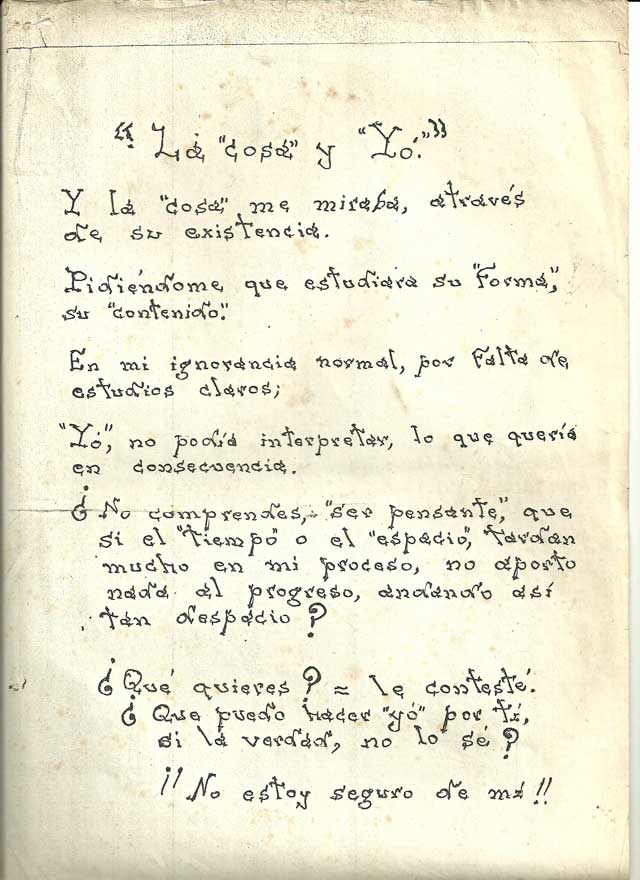 "La "cosa" y "Yó.""
Y la "cosa" me miraba, através
de su existencia.
Pidiéndome que estudiara su "Forma",
su "contenido".
En mi ignorancia normal, por falta de
estudios claros;
"Yó", no podía interpretar, lo que quería
en consecuencia.
¿No comprendes, "ser pensante", que
si el "tiempo" o el "espacio", tardan
mucho en mi proceso, no aporto
nada al progreso, andando así
tan despacio?
¿Qué quieres? = le contesté.
¿Que puedo hacer "yó" por tí,
si la verdad, no lo sé?
¡¡No estoy seguro de mí!!